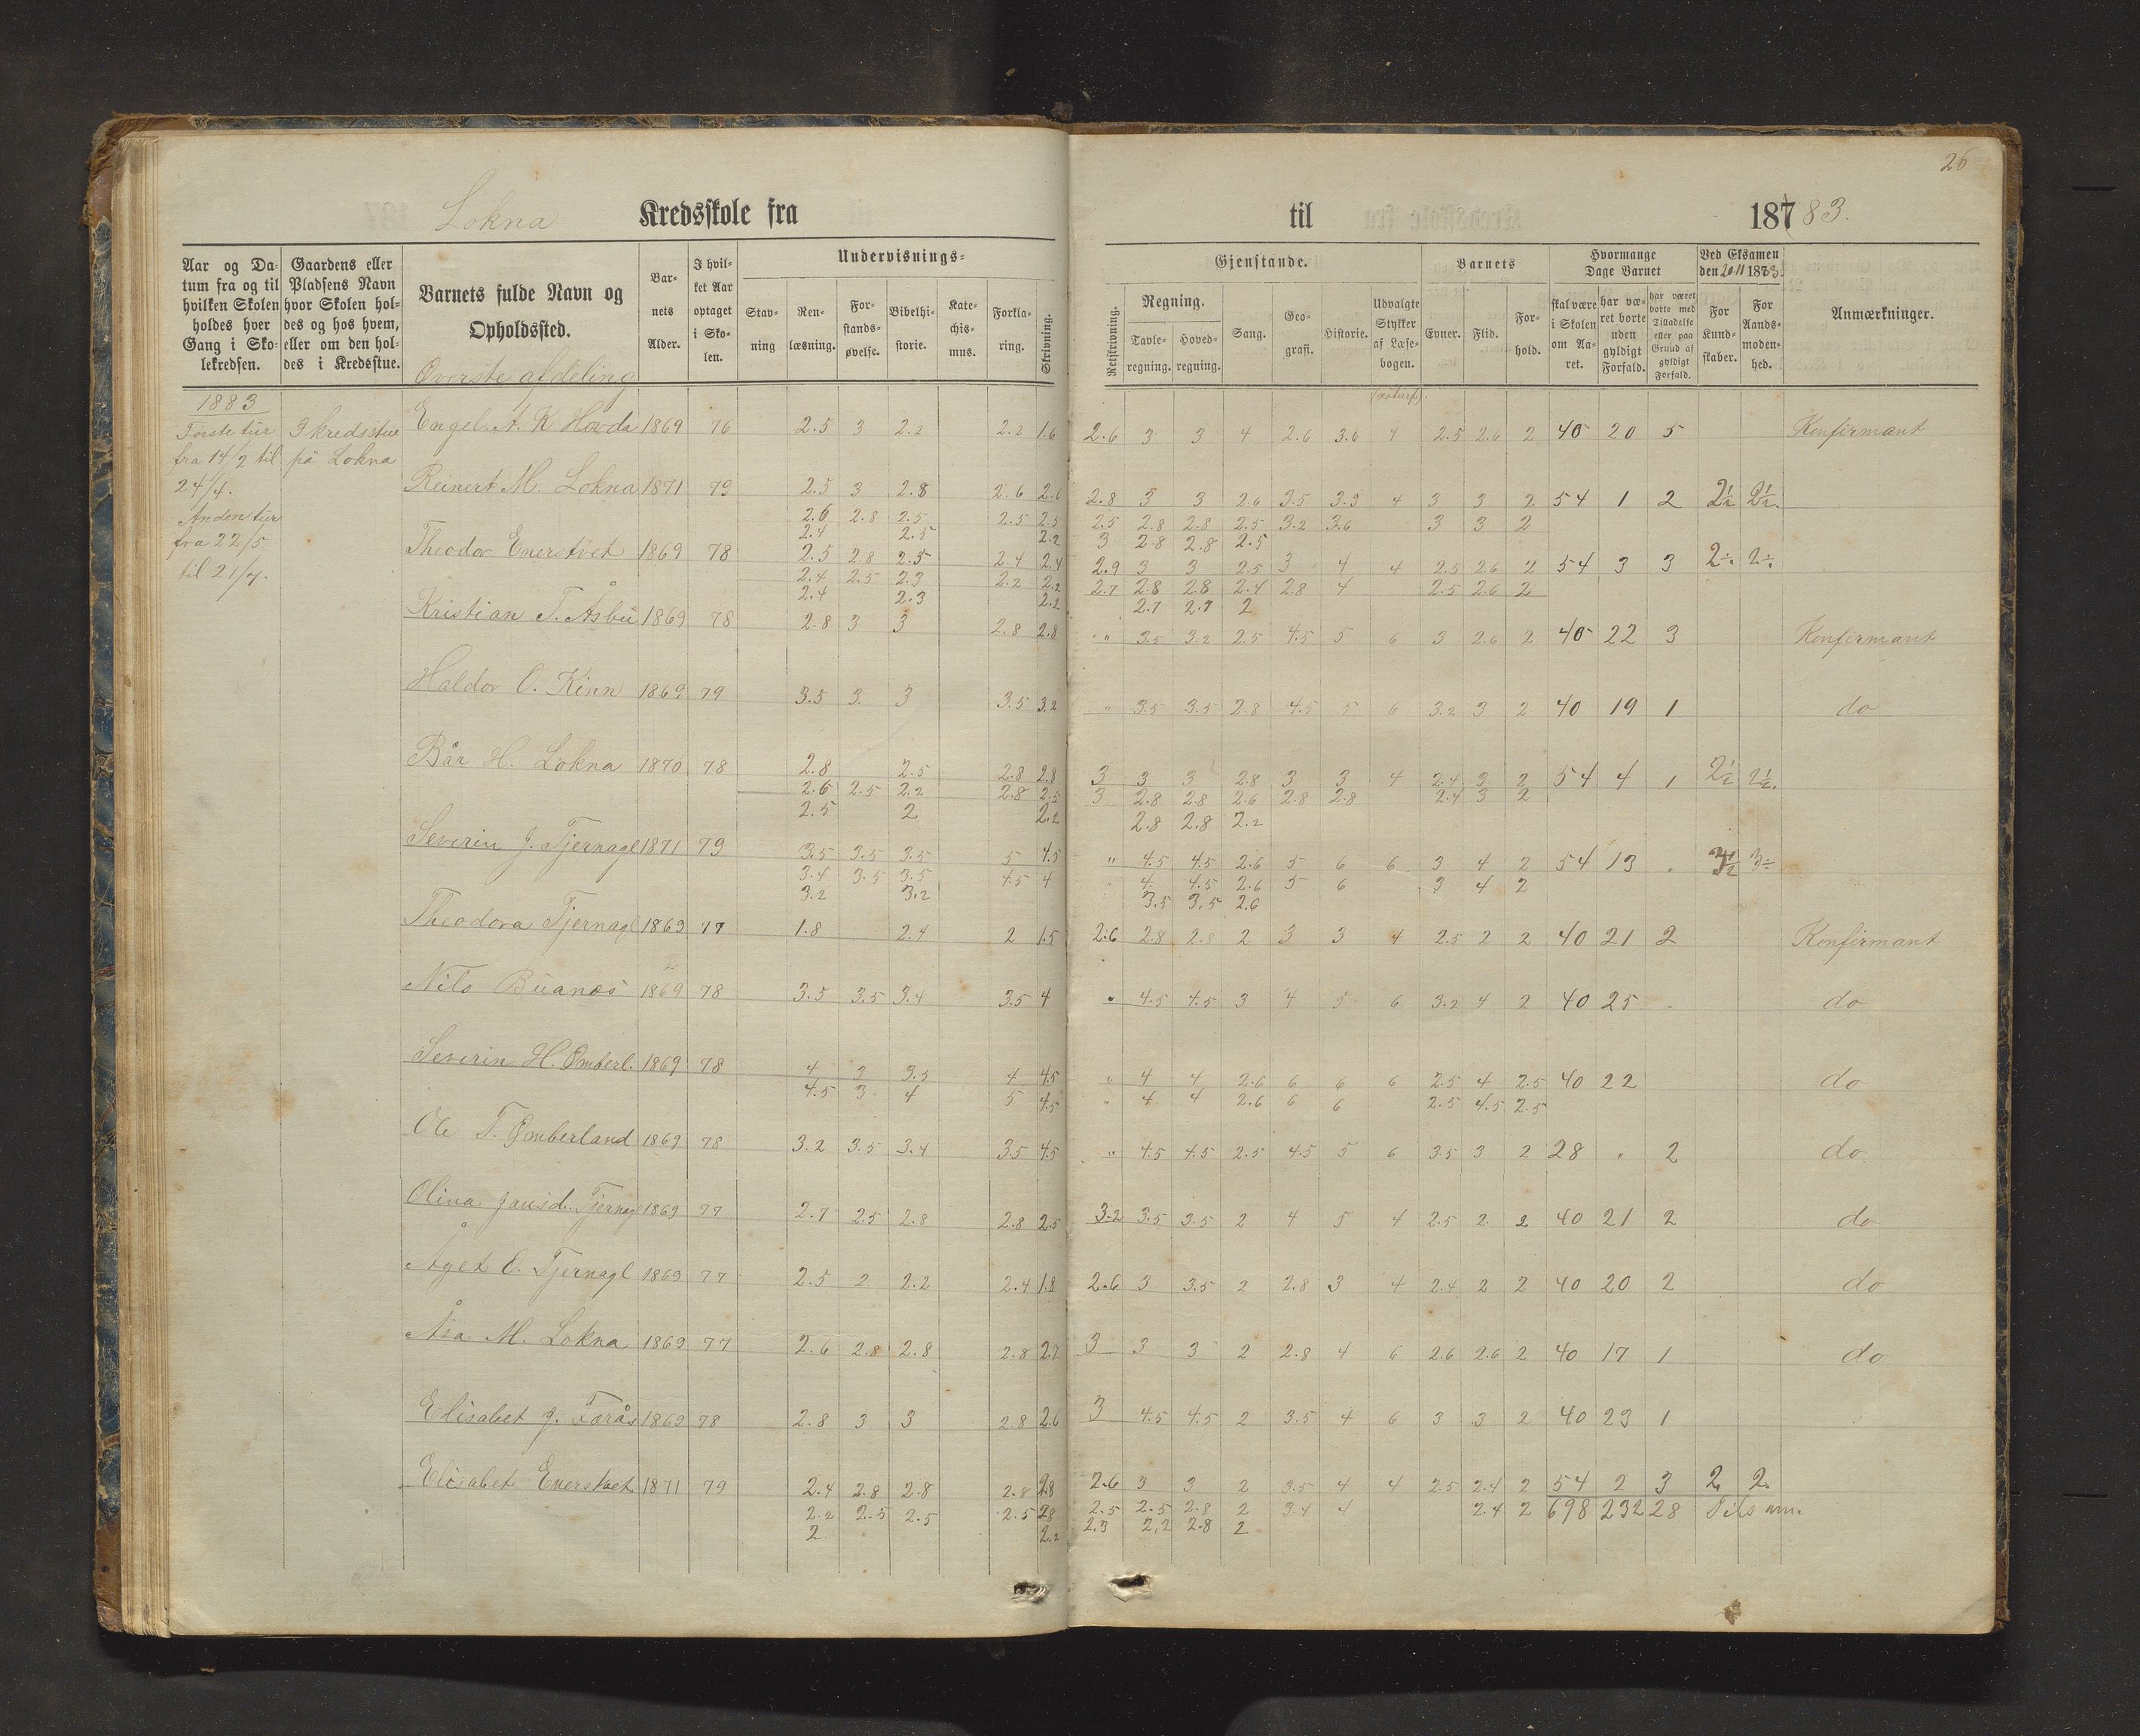 26
Lokna Kredsskole fra til 187 83.
Aar og Da-
tum fra og til
hvilken Skolen
holdes hver
Gang i Sko-
lekredsen.
Gaardens eller
Pladsens Navn
hvor Skolen hol-
des og hos hvem,
eller om den hol-
des i Kredsstue.
Barnets fulde Navn og
Opholdssted.
Bar-
nets
Alder.
I hvil-
ket Aar
optaget
i Sko-
len.
Undervisnings-
Stav-
ning
Ren-
læsning.
For-
stands-
øvelse.
Bibelhi-
storie.
Kate-
chis-
mus.
Forkla-
ring.
Skrivning.
Gjenstande.
Retskrivning.
Regning.
Tavle-
regning.
Hoved-
regning.
Sang.
Geo-
grafi.
Historie.
Udvalgte
Stykker
af Læse-
bogen.
Barnets
Evner.
Flid.
For-
hold.
Hvormange
Dage Barnet
skal være
i Skolen
om Aa-
ret.
har væ-
ret borte
uden
gyldigt
Forfald.
har været
borte med
Tilladelse
eller paa
Grund af
gyldigt
Forfald.
Ved Eksamen
den 20 11 1883.
For
Kund-
skaber.
For
Aands-
moden-
hed.
Anmærkninger.
Øverste afdeling
(naturf.)
1883
Første tur
fra 14/2 til
24/4.
Anden tur
fra 22/5
til 21/7.
I kredsstue
på Lokna
Engel A. K Hovda 1869 76 2.5 3 2.2 2.2 1.6 2.6 3 3 4 2.6 3.6 4 2.5 2.6 2 40 20 5 Konfirmant
Reinert M. Lokna 1871 79 2.5 3 2.8 2.6 2.6 2.8 3 3 2.6 3.5 3.9 4 3 3 2 54 1 2 2½ 2½.
2.6 2.8 2.5 2.5 2.5 2.5 2.8 2.8 2.5 3.2 3.6 3 3 2
2.4 2.5 2.2 3 2.8 2.8 2.5
Theodor Enerstvet 1869 78 2.5 2.8 2.5 2.4 2.4 2.9 3 3 2.5 3 4 4 2.5 2.6 2 54 3 3 2÷ 2÷
2.4 2.5 2.3 2.2 2.2 2.7 2.8 2.8 2.4 2.8 4 2.5 2.6 2
2.4 2.3 2.2 2.7 2.7 2
Kristian T. Åsbu 1869 78 2.8 3 3 2.8 2.8 " 3.5 3.2 2.5 4.5 5 6 3 2.6 2 40 22 3 Konfirmant
Haldor O. Kinn 1869 79 3.5 3 3 3.5 3.2 " 3.5 3.5 2.8 4.5 5 6 3.2 3 2 40 19 1 do
Bår H. Lokna 1870 78 2.8 2.5 2.8 2.8 3 3 3 2.8 3 3 4 2.4 3 2 54 4 1 2½ 2½.
2.6 2.5 2.2 2.8 2.5 3 2.8 2.8 2.6 2.8 2.8 2.4 3 2
2.5 2 2.2 2.8 2.8 2.2
Severin J. Tjernagel 1871 79 3.5 3.5 3.5 5 4.5 " 4.5 4.5 2.6 5 6 6 3 4 2 54 13 . 3½ 3÷
3.4 3.5 3.5 4.5 4 " 4. 4.5 2.6 5 6 3 4 2
3.2 3.2 3.5 3.5 2.6
Theodora Tjernagl 1869 77 1.8 2.4 2 1.5 2.6 2.8 2.8 2 3 3 4 2.5 2 2 40 21 2 Konfirmant
Nils Buanæs 1869 78 3.5 3.5 3.4 3.5 4 " 4.5 4.5 3 4 5 6 3.2 4 2 40 25 . do
Severin H. Ømberl. 1869 78 4 3 3.5 4 4.5 " 4 4 2.6 6 6 6 2.5 4 2.5 40 22 do
4.5 3 4 5 4.5 " 4 4 2.6 6 6 2.5 4.5 2.5
Ole T. Ømberland 1869 78 3.2 3.5 3.4 3.5 4.5 " 4.5 4.5 2.5 4.5 5 6 3.5 3 2 28 " 2 do
Olina Jansd. Tjernag 1869 77 2.7 2.5 2.8 2.8 2.5 3.2 3.5 3.5 2 4 5 4 2.5 2 2 40 21 2 do
Åget E. Tjernagl 1869 77 2.5 2 2.2 2.4 1.8 2.6 3 3.5 2 2.8 3 4 2.4 2 2 40 20 2 do
Åsa M. Lokna 1869 77 2.6 2.8 2.8 2.8 2.7 3 3 3 2 2.8 4 6 2.6 2.6 2 40 17 1 do
Elisabet J. Færås 1869 78 2.8 3 3 2.8 2.6 3 4.5 4.5 2 3.5 4 6 3 3 2 40 23 1
Elisabet Enerstvet 1871 79 2.4 2.8 2.8 2.8 2.8 2.6 3 3 2 3.5 4 4 2.5 2.4 2 54 2 3 2 2
2.2 2.5 2.5 2.5 2.8 2.5 2.5 2.8 2 3.4 4 2.4 2 698 232 28 Tilsam.
2 2.2 2.3 2.2 2.8 2